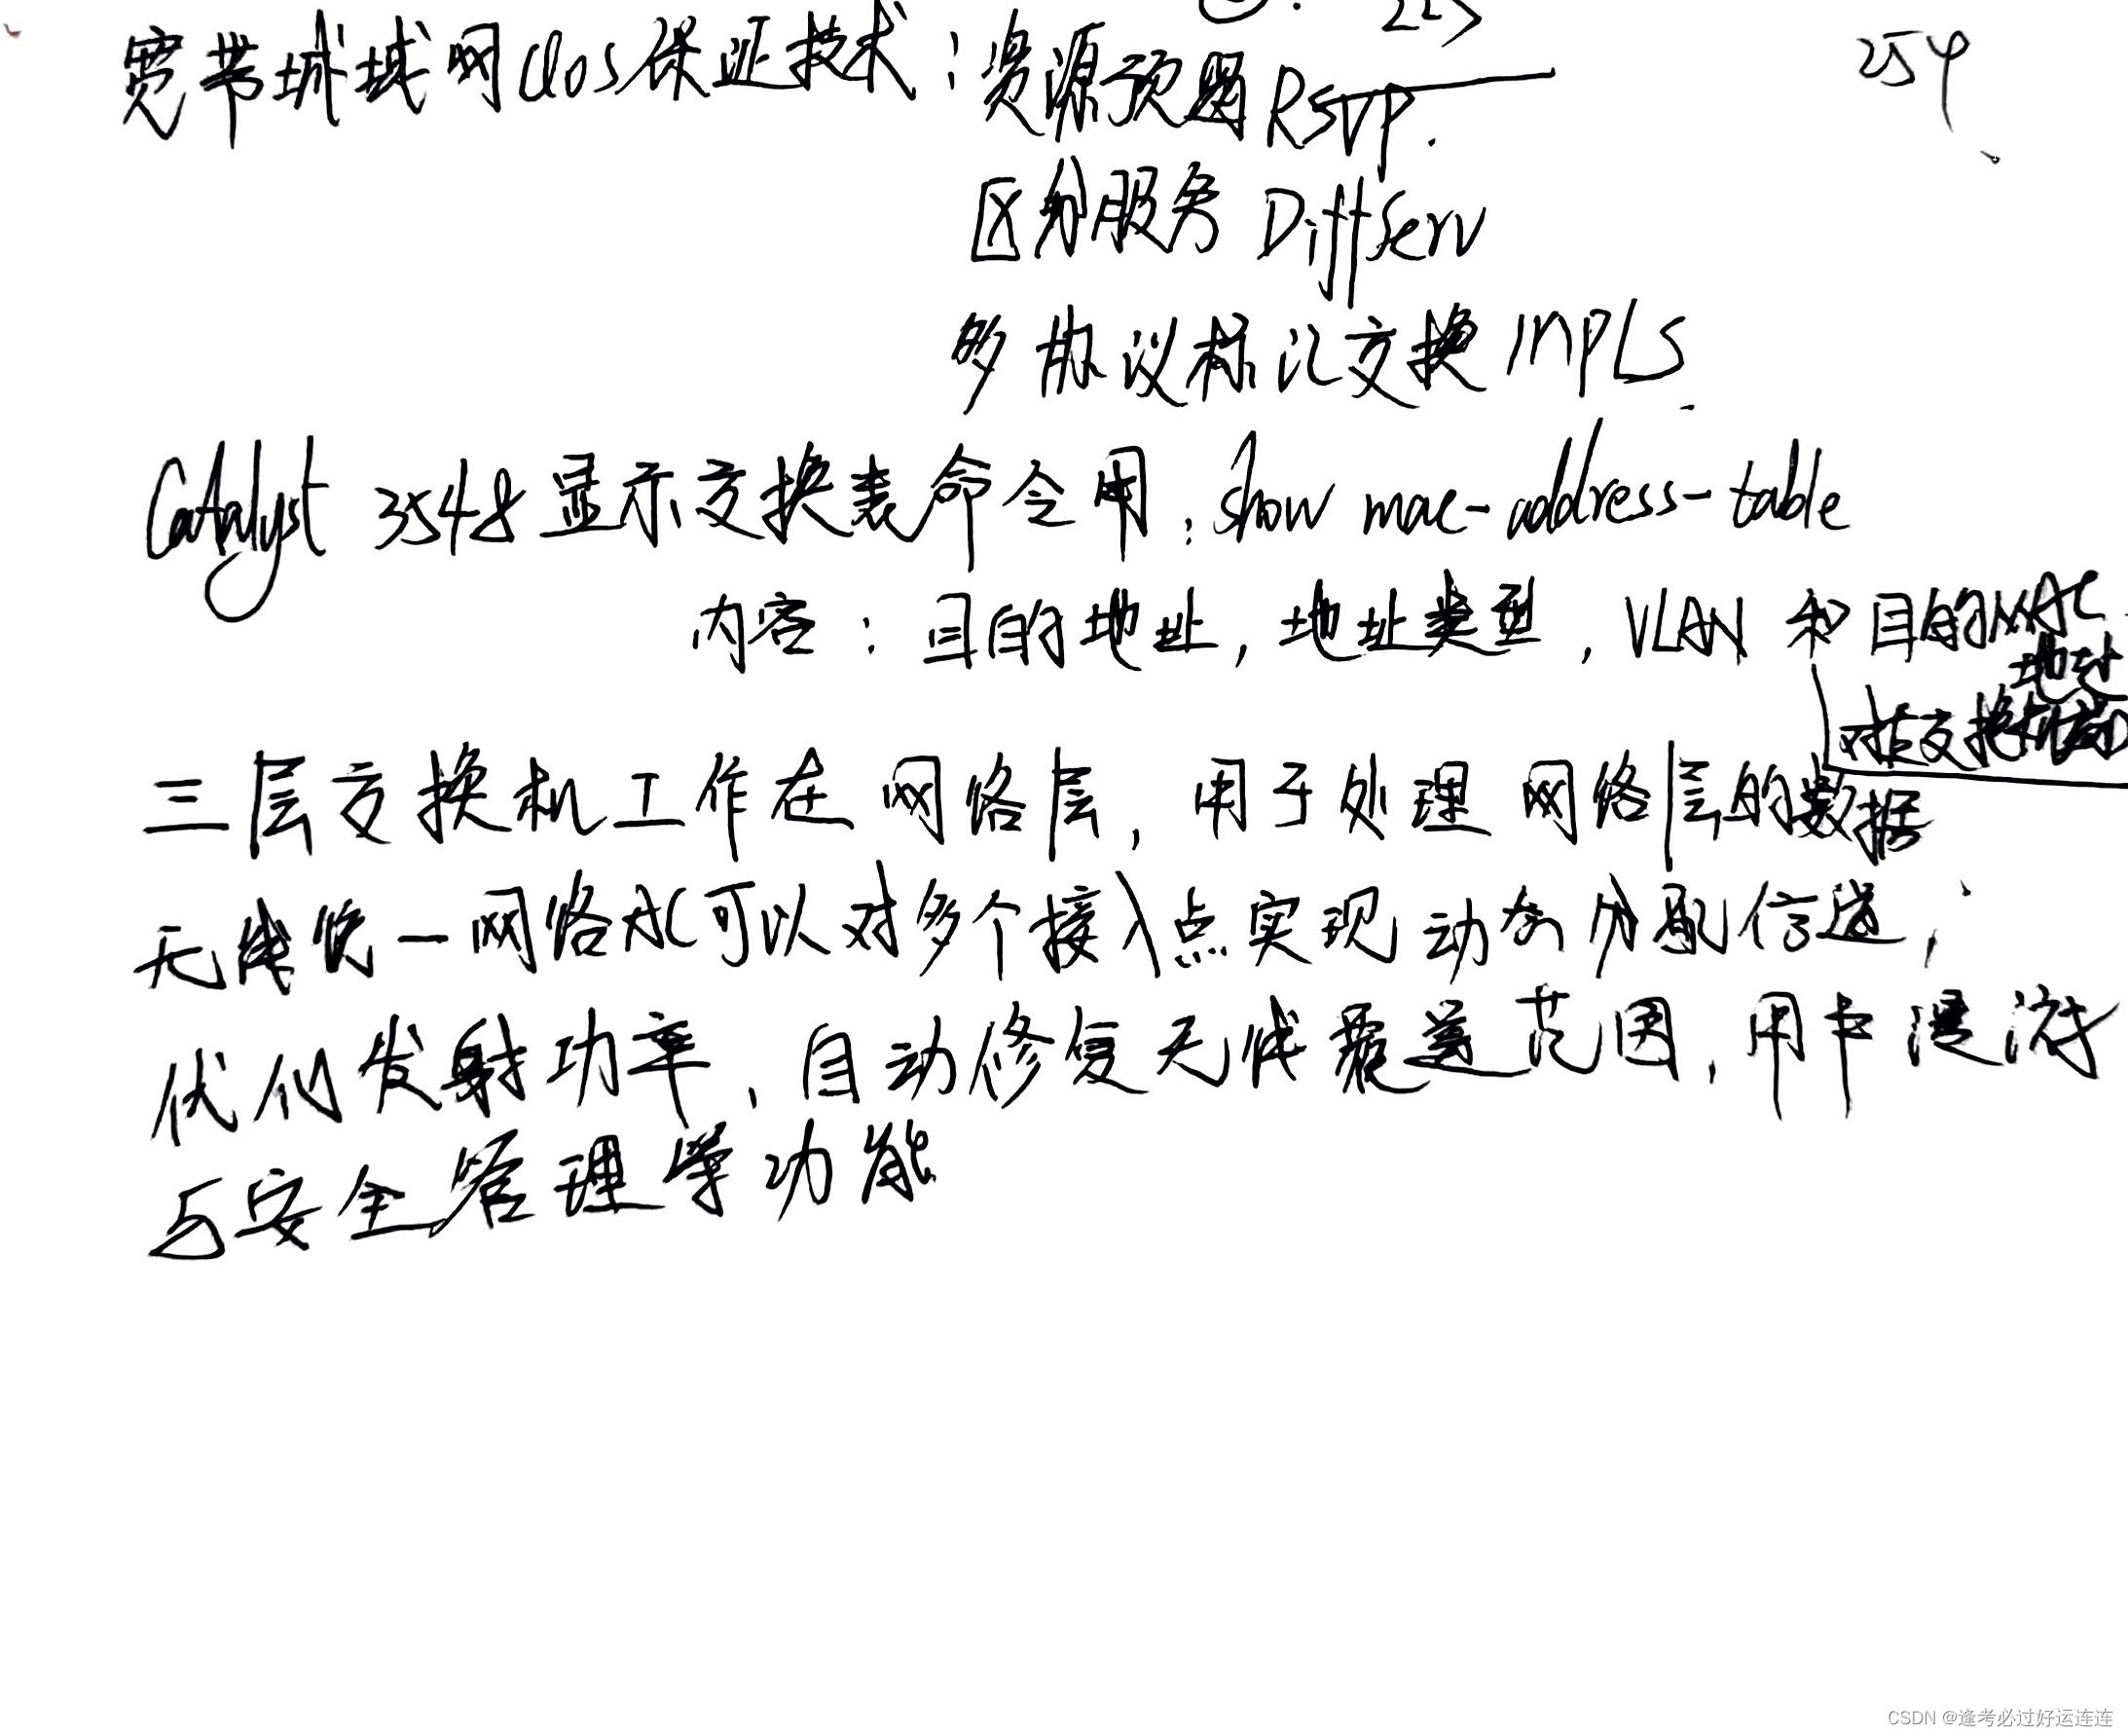 254
宽带城域网QoS保证技术：资源预留RSVP.
区分服务 DiffServ
多协议标识交换 MPLS.
Catalyst 3548显示交换表命令用：show mac-address-table
内容：目的地址，地址类型，VLAN 和目的MAC
地址
对应交换机端口
三层交换机工作在网络层，用于处理网络层的数据
无线统一网络就可以对多个接入点实现动态分配信道，
优化发射功率，自动修复无线覆盖范围，用户漫游
与安全管理等功能
CSDN @逢考必过好运连连